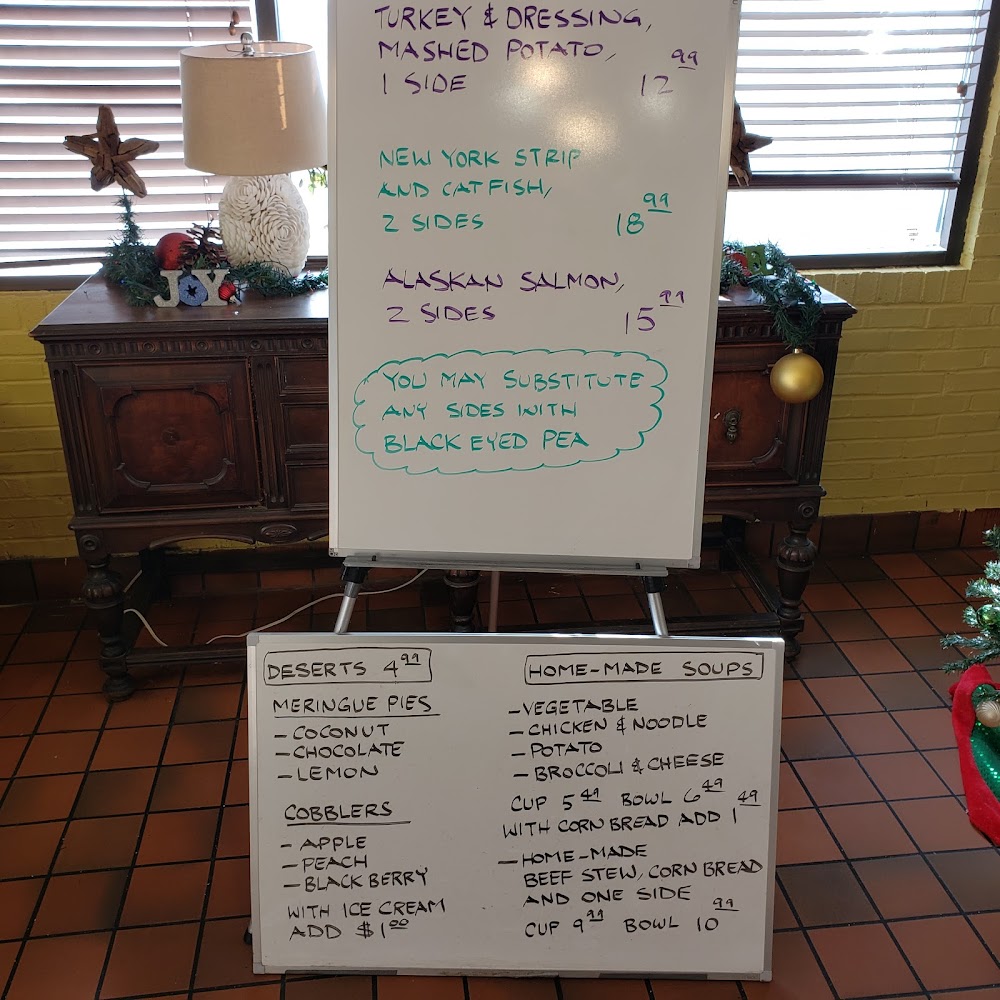 TURKEY & DRESSING,
MASHED POTATO,
1 SIDE 12 99
NEW YORK STRIP
AND CATFISH,
2 SIDES 18 99
ALASKAN SALMON,
2 SIDES 15 99
YOU MAY SUBSTITUTE
ANY SIDES WITH
BLACK EYED PEA
JOY
DESERTS 4 99
MERINGUE PIES
- COCONUT
- CHOCOLATE
- LEMON
COBBLERS
- APPLE
- PEACH
- BLACK BERRY
WITH ICE CREAM
ADD $1 00
HOME-MADE SOUPS
- VEGETABLE
- CHICKEN & NOODLE
- POTATO
- BROCCOLI & CHEESE
CUP 5 49 BOWL 6 49
WITH CORN BREAD ADD 1 49
- HOME-MADE
BEEF STEW, CORN BREAD
AND ONE SIDE
CUP 9 99 BOWL 10 99